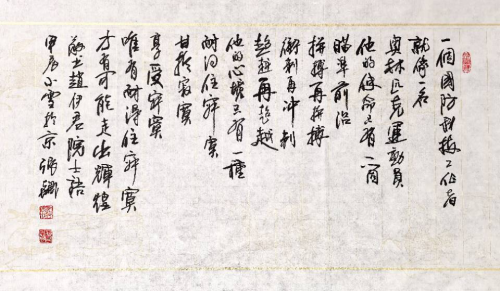 一個國防科技工作者
就像一名
奥林匹克運動員
他的使命只有一個
瞄準前沿
拼搏再拼搏
衝刺再冲刺
超越再超越
他的心境只有一種
耐得住寂寞
甘於寂寞
享受寂寞
唯有耐得住寂寞
才有可能走出輝煌
敬书趙伊君院士語
甲辰小雪於京